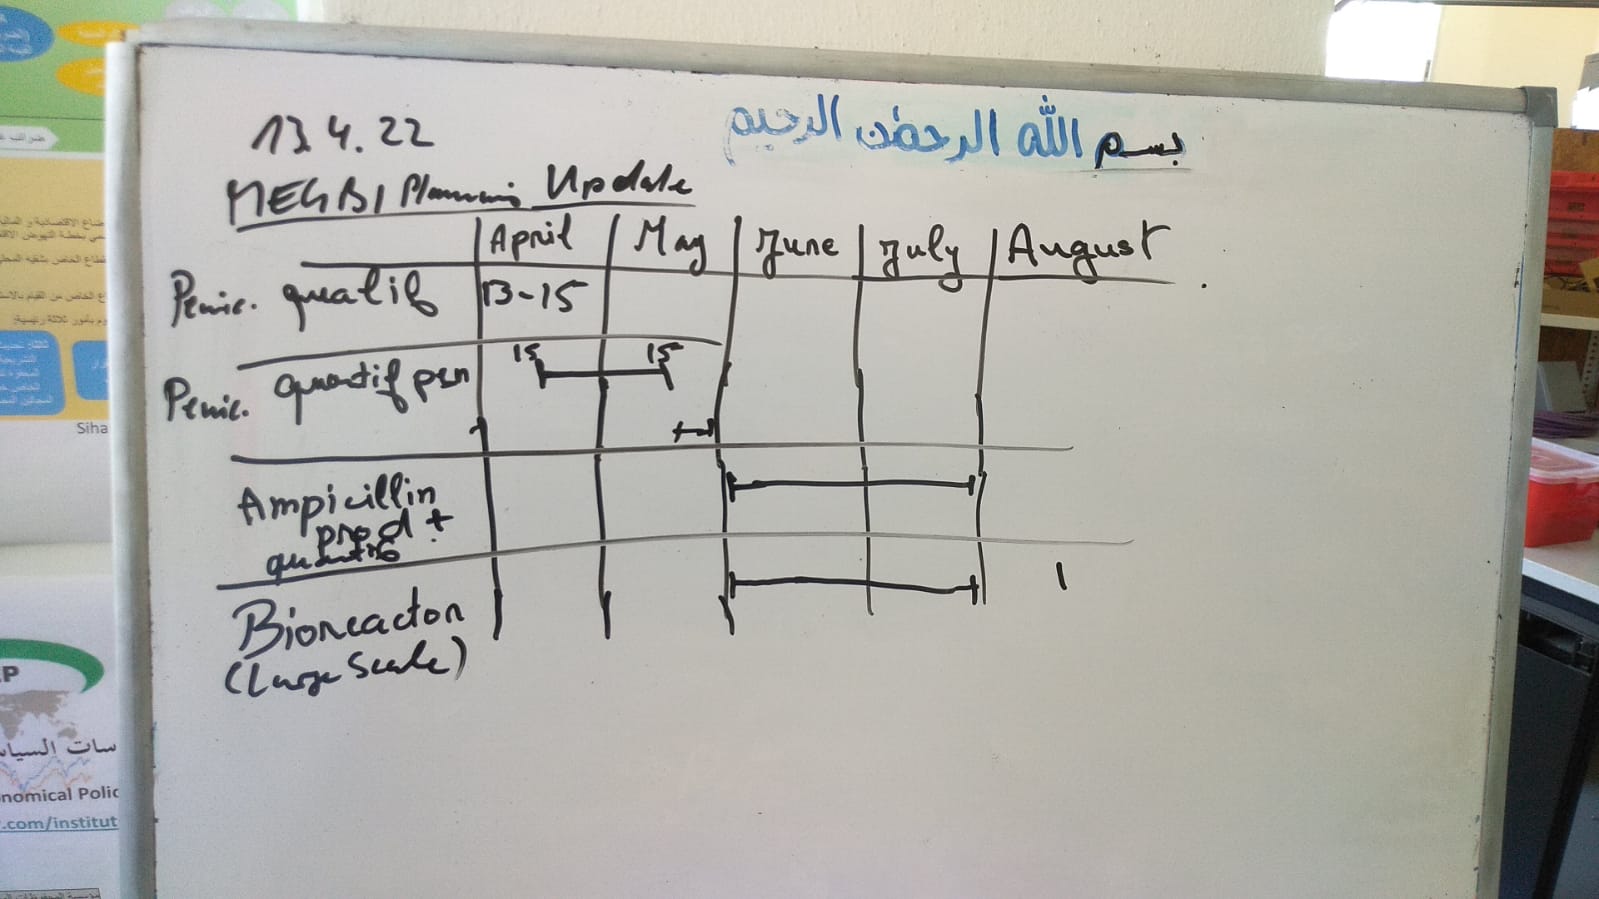 13.4.22
بسم الله الرحمٰن الرحيم
MEGBI Planning Update
April May June July August
Penic. qualif 13-15
15 15
Penic. quantif pen
Ampicillin
prod +
quantif
Bioreactor
(Large Scale)
Siha
P
سات السياس
nomical Polic
.com/institut